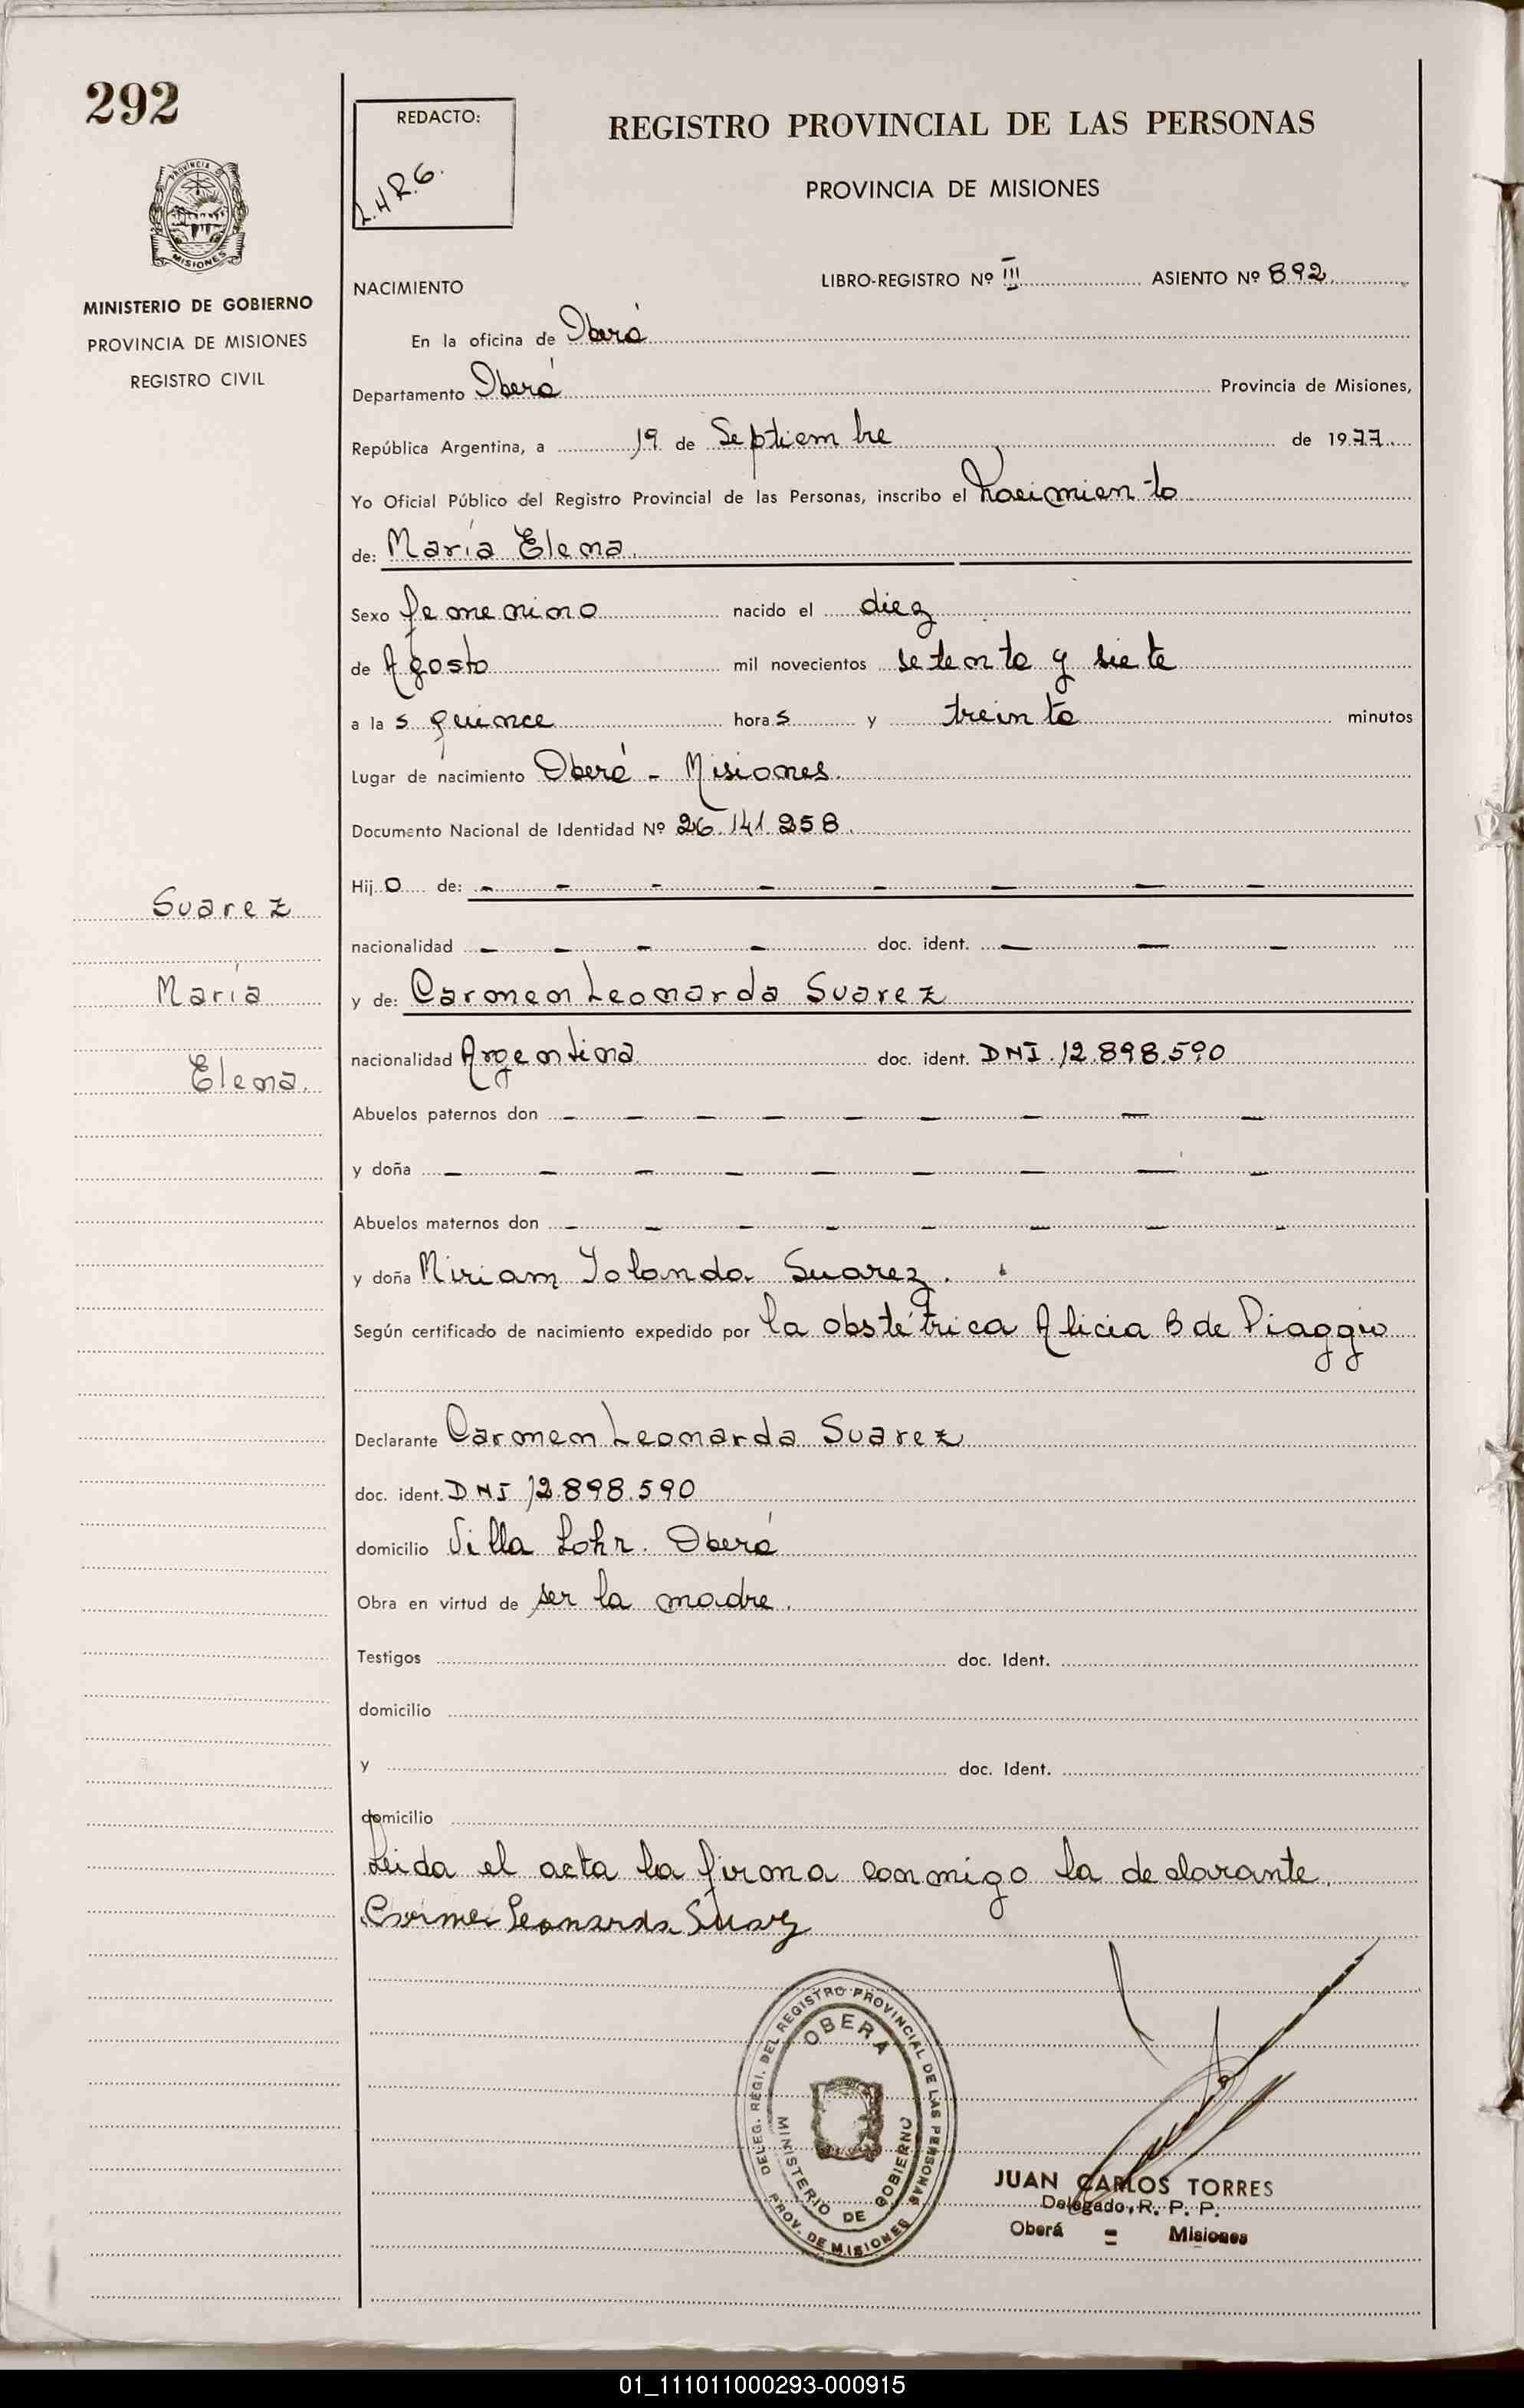 292
REDACTO:
L.H.R.G.
REGISTRO PROVINCIAL DE LAS PERSONAS
PROVINCIA DE MISIONES
PROVINCIA
MISIONES
MINISTERIO DE GOBIERNO
PROVINCIA DE MISIONES
REGISTRO CIVIL
NACIMIENTO
LIBRO-REGISTRO Nº III ASIENTO Nº 892
En la oficina de Oberá
Departamento Oberá Provincia de Misiones,
República Argentina, a 19 de Septiembre de 1977.
Yo Oficial Público del Registro Provincial de las Personas, inscribo el Nacimiento
de: María Elena.
Sexo femenino nacido el diez
de Agosto mil novecientos setenta y siete
a las quince horas y treinta minutos
Lugar de nacimiento Oberá - Misiones.
Documento Nacional de Identidad Nº 26.141.258.
Hijo de: - - - - - - - -
nacionalidad - - - - doc. ident. - - -
y de: Carmen Leonarda Suarez
nacionalidad Argentina doc. ident. DNI. 12.898.590
Abuelos paternos don - - - - - - - - -
y doña - - - - - - - - -
Abuelos maternos don - - - - - - - -
y doña Miriam Yolanda Suarez.
Según certificado de nacimiento expedido por la obstétrica Alicia B de Piaggio
Declarante Carmen Leonarda Suarez
doc. ident. DNI 12.898.590
domicilio Villa Lohr. Oberá
Obra en virtud de ser la madre.
Testigos doc. Ident.
domicilio
y doc. Ident.
domicilio
Leida el acta la firma conmigo la declarante.
Carmen Leonarda Suarez
Suarez
María
Elena.
DELEG. REGI. DEL REGISTRO PROVINCIAL DE LAS PERSONAS
OBERA
MINISTERIO DE GOBIERNO
PROV. DE MISIONES
JUAN CARLOS TORRES
Delegado, R. P. P.
Oberá = Misiones
01_111011000293-000915